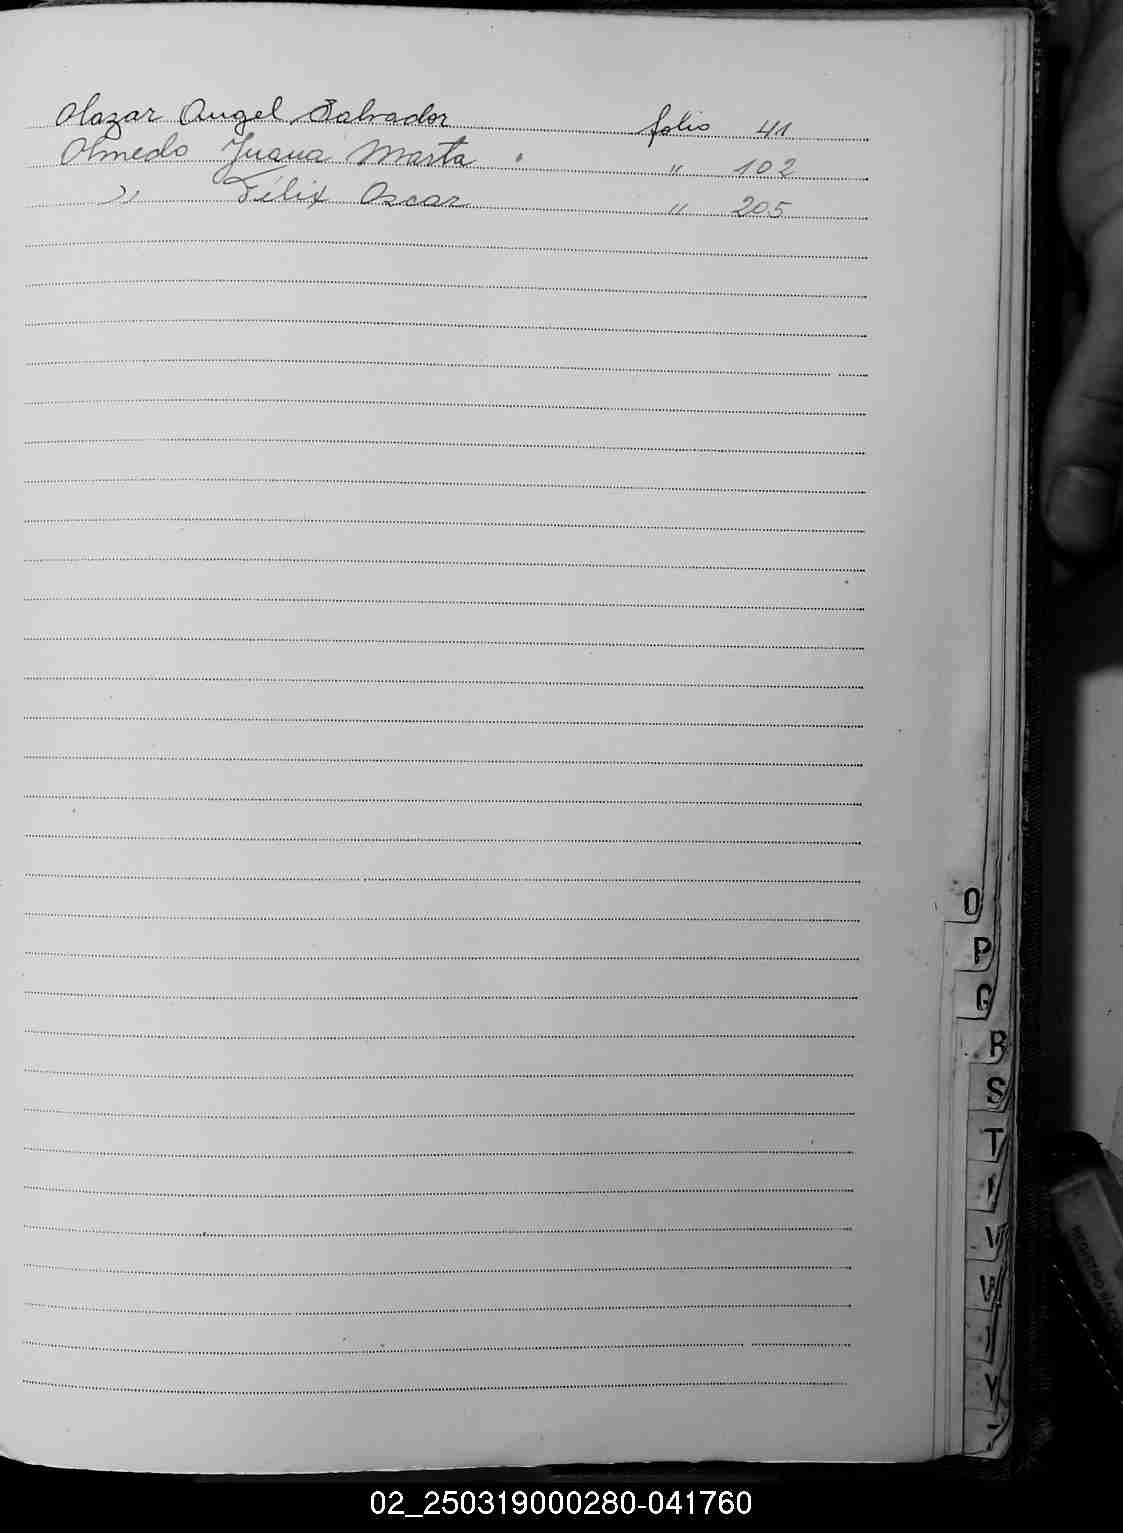 Olazar Angel Salvador folio 41
Olmedo Juana Marta . " 102
" Félix Oscar " 205
O
P
Q
R
S
T
V
W
Y
02_250319000280-041760